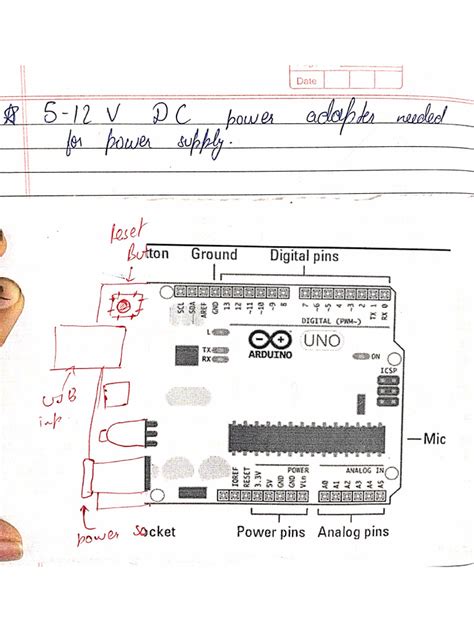 Date
☆ 5-12 V DC power adapter needed
for power supply.
Reset
Button Ground Digital pins
SCL
SDA
AREF
GND
13
12
~11
~10
~9
8
7
~6
~5
4
~3
2
TX 1
RX 0
DIGITAL (PWM~)
L
TX
RX
ARDUINO
UNO
ON
ICSP
USB
inp.
Mic
IOREF
RESET
3.3V
5V
GND
GND
Vin
POWER
ANALOG IN
A0
A1
A2
A3
A4
A5
power socket Power pins Analog pins